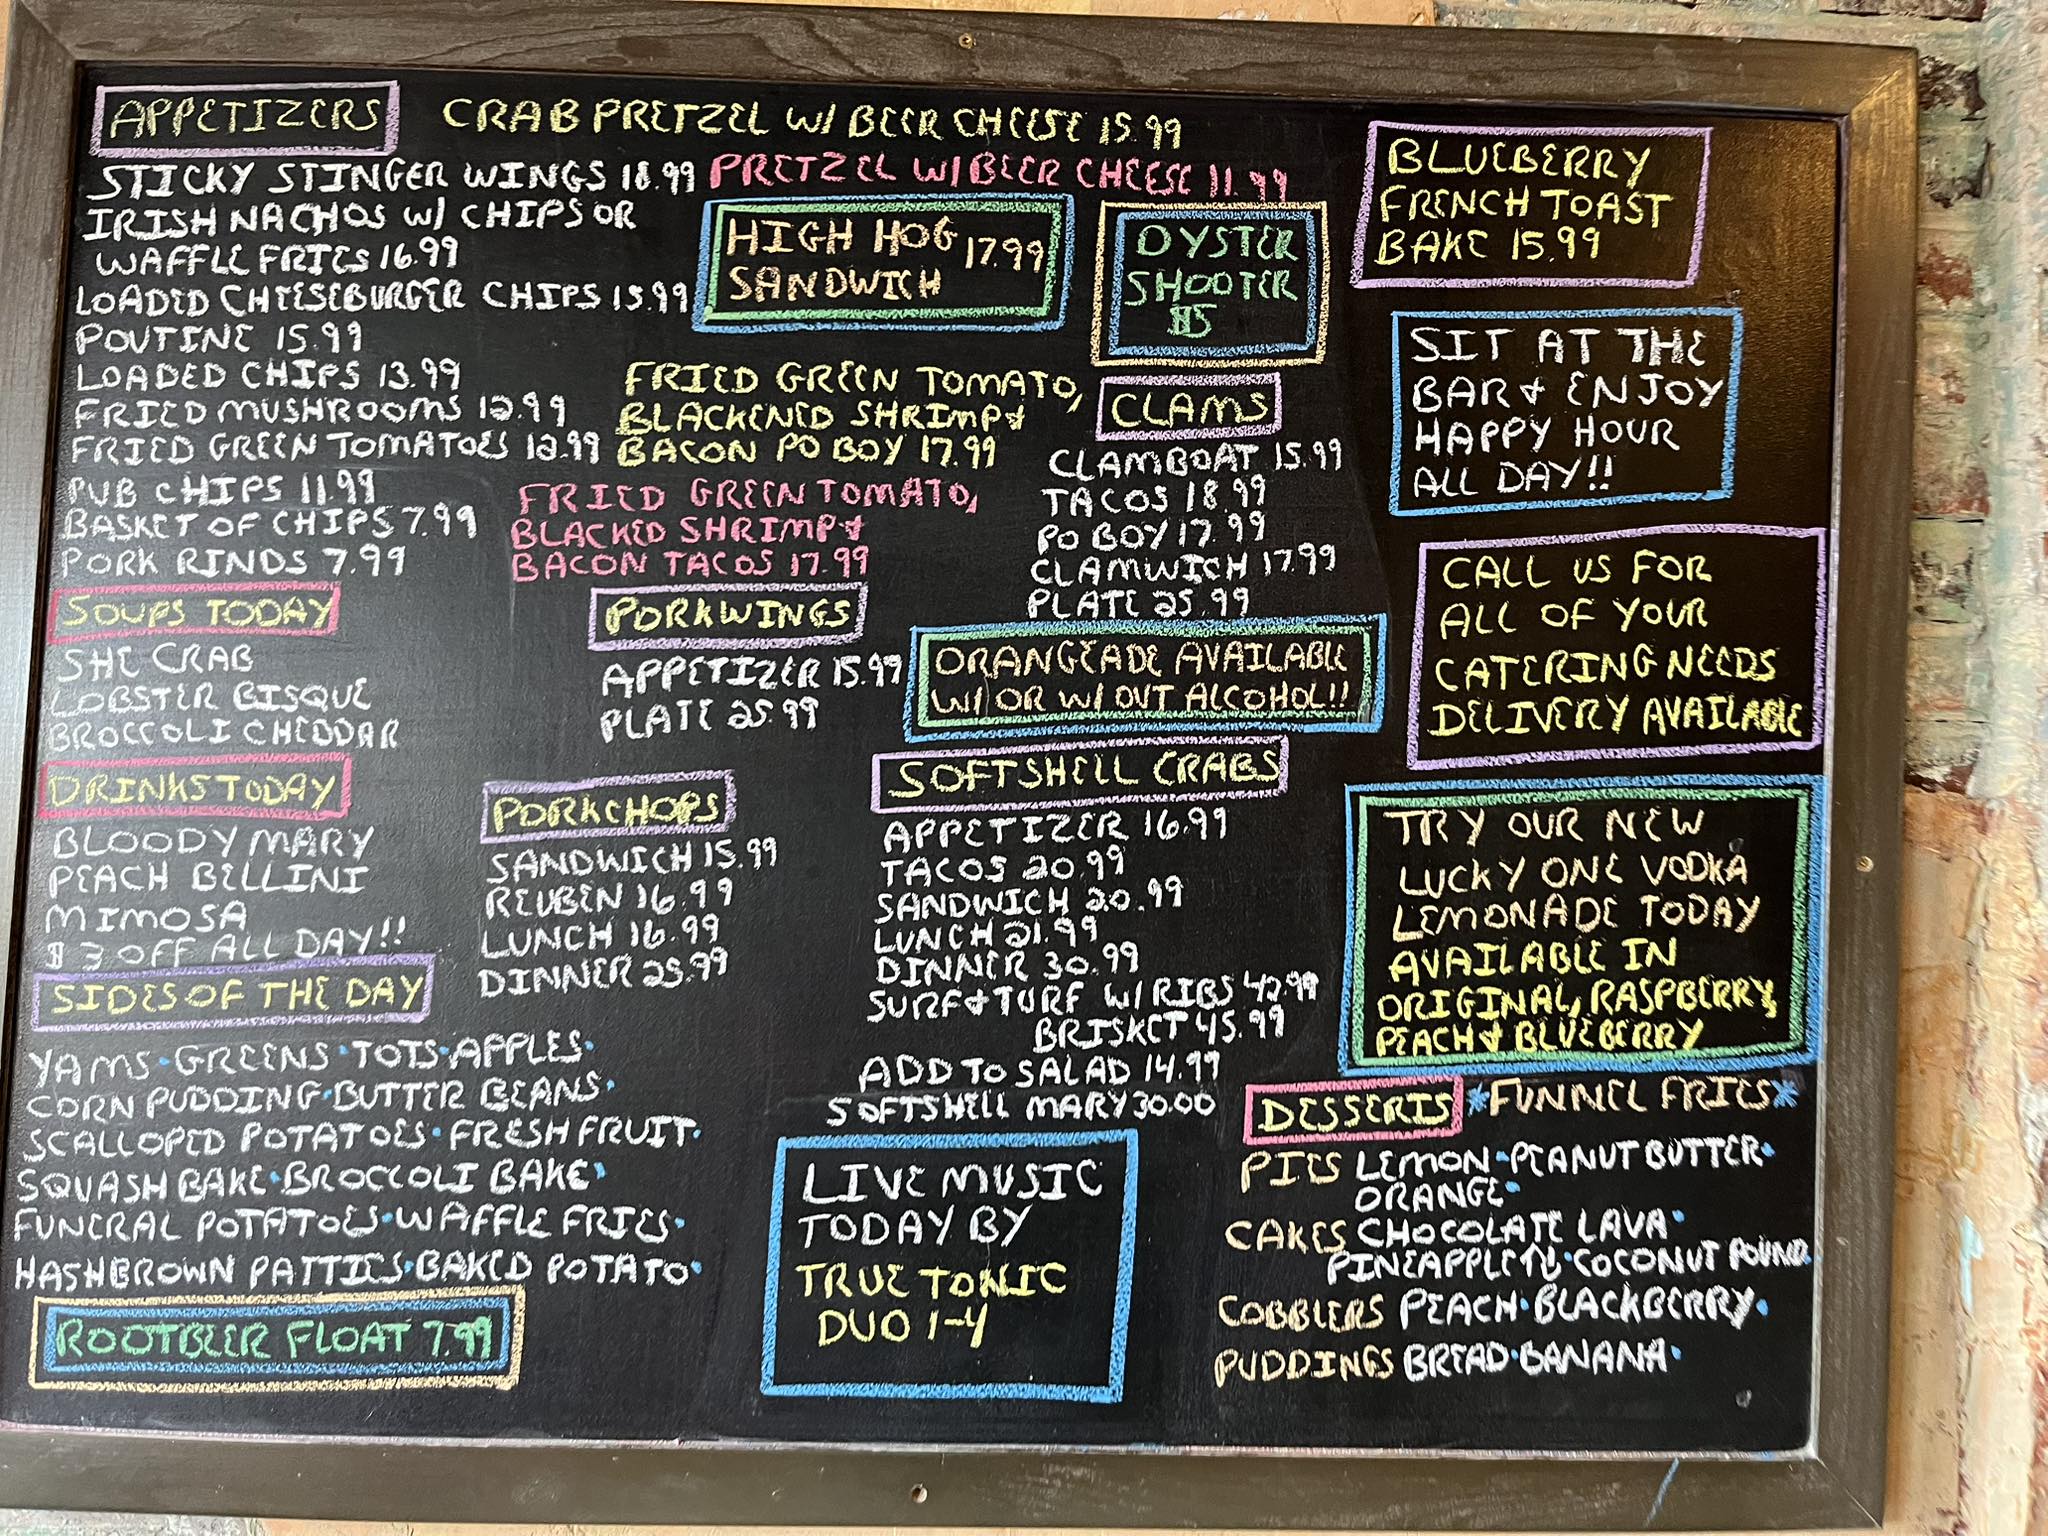 APPETIZERS
CRAB PRETZEL W/ BEER CHEESE 15.99
STICKY STINGER WINGS 18.99
PRETZEL W/ BEER CHEESE 11.99
IRISH NACHOS W/ CHIPS OR
WAFFLE FRIES 16.99
LOADED CHEESEBURGER CHIPS 15.99
POUTINE 15.99
LOADED CHIPS 13.99
FRIED MUSHROOMS 12.99
FRIED GREEN TOMATOES 12.99
PUB CHIPS 11.99
BASKET OF CHIPS 7.99
PORK RINDS 7.99
SOUPS TODAY
SHE CRAB
LOBSTER BISQUE
BROCCOLI CHEDDAR
DRINKS TODAY
BLOODY MARY
PEACH BELLINI
MIMOSA
$3 OFF ALL DAY!!
SIDES OF THE DAY
YAMS · GREENS · TOTS · APPLES ·
CORN PUDDING · BUTTER BEANS ·
SCALLOPED POTATOES · FRESH FRUIT ·
SQUASH BAKE · BROCCOLI BAKE ·
FUNERAL POTATOES · WAFFLE FRIES ·
HASHBROWN PATTIES · BAKED POTATO ·
ROOTBEER FLOAT 7.99
HIGH HOG 17.99
SANDWICH
FRIED GREEN TOMATO,
BLACKENED SHRIMP &
BACON PO BOY 17.99
FRIED GREEN TOMATO,
BLACKED SHRIMP &
BACON TACOS 17.99
PORKWINGS
APPETIZER 15.99
PLATE 25.99
PORKCHOPS
SANDWICH 15.99
REUBEN 16.99
LUNCH 16.99
DINNER 25.99
OYSTER
SHOOTER
$5
CLAMS
CLAMBOAT 15.99
TACOS 18.99
PO BOY 17.99
CLAMWICH 17.99
PLATE 25.99
ORANGEADE AVAILABLE
W/ OR W/OUT ALCOHOL!!
SOFTSHELL CRABS
APPETIZER 16.99
TACOS 20.99
SANDWICH 20.99
LUNCH 21.99
DINNER 30.99
SURF & TURF W/ RIBS 42.99
BRISKET 45.99
ADD TO SALAD 14.99
SOFTSHELL MARY 30.00
LIVE MUSIC
TODAY BY
TRUE TONIC
DUO 1-4
BLUEBERRY
FRENCH TOAST
BAKE 15.99
SIT AT THE
BAR & ENJOY
HAPPY HOUR
ALL DAY!!
CALL US FOR
ALL OF YOUR
CATERING NEEDS
DELIVERY AVAILABLE
TRY OUR NEW
LUCKY ONE VODKA
LEMONADE TODAY
AVAILABLE IN
ORIGINAL, RASPBERRY,
PEACH & BLUEBERRY
DESSERTS *FUNNEL FRIES*
PIES LEMON · PEANUT BUTTER ·
ORANGE ·
CAKES CHOCOLATE LAVA ·
PINEAPPLE ↑↓ · COCONUT POUND
COBBLERS PEACH · BLACKBERRY ·
PUDDINGS BREAD · BANANA ·